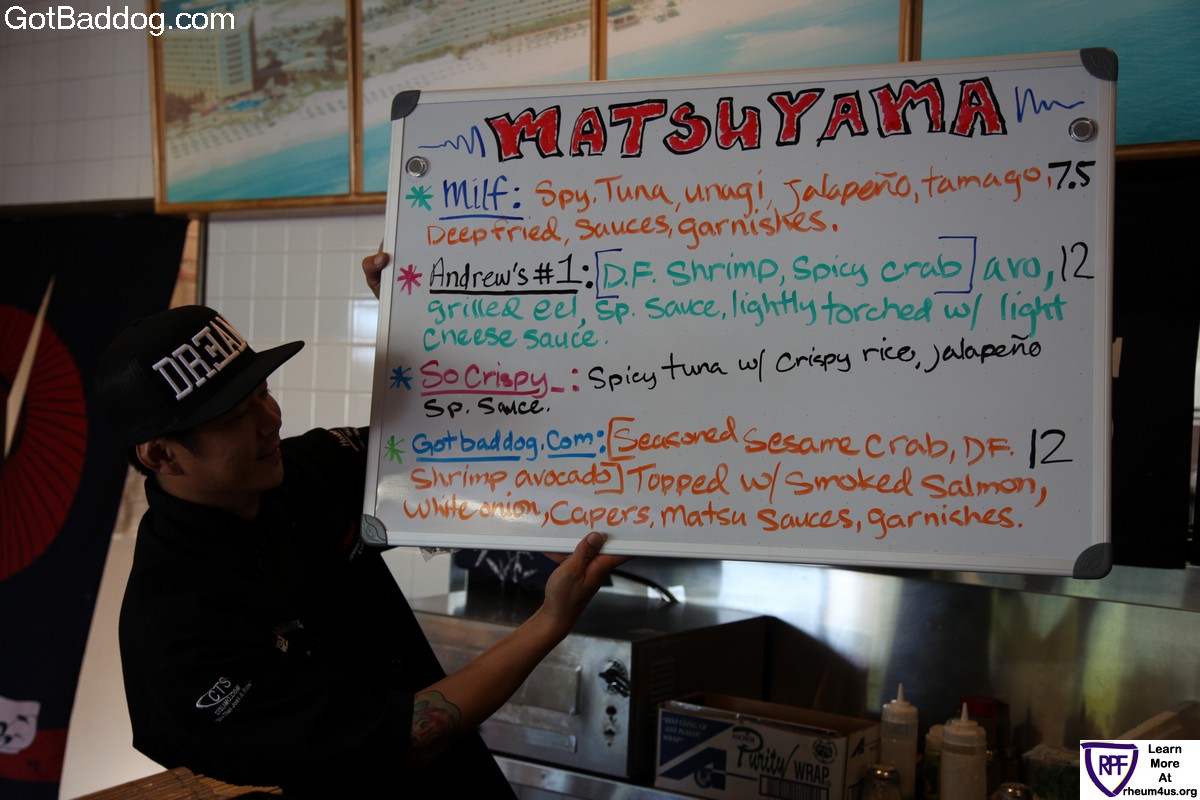 GotBaddog.com
MATSUYAMA
* Milf: Spy. Tuna, unagi, Jalapeño, tamago, 7.5
Deepfried, Sauces, garnishes.
* Andrew's #1: [D.F. Shrimp, Spicy crab] avo, 12
grilled eel, Sp. Sauce, lightly torched w/ light
cheese sauce.
* So Crispy_: Spicy tuna w/ Crispy rice, jalapeño
Sp. Sauce.
* Gotbaddog.Com: [Seasoned Sesame Crab, DF. 12
Shrimp avocado] Topped w/ Smoked Salmon,
White onion, Capers, Matsu Sauces, garnishes.
DREAM
CTS
Purity
WRAP
RPF
Learn
More
At
rheum4us.org